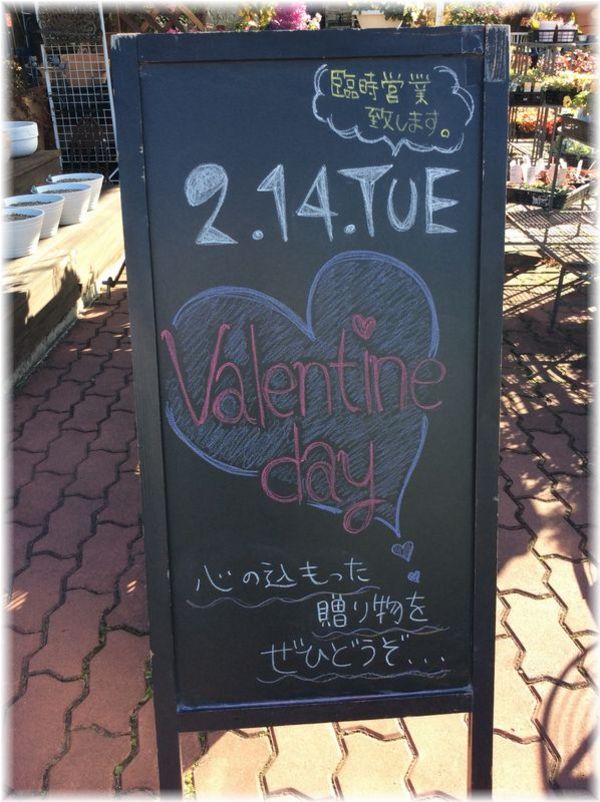 臨時営業
致します。
2.14.TUE
Valentine
day
心の込もった
贈り物を
ぜひどうぞ...